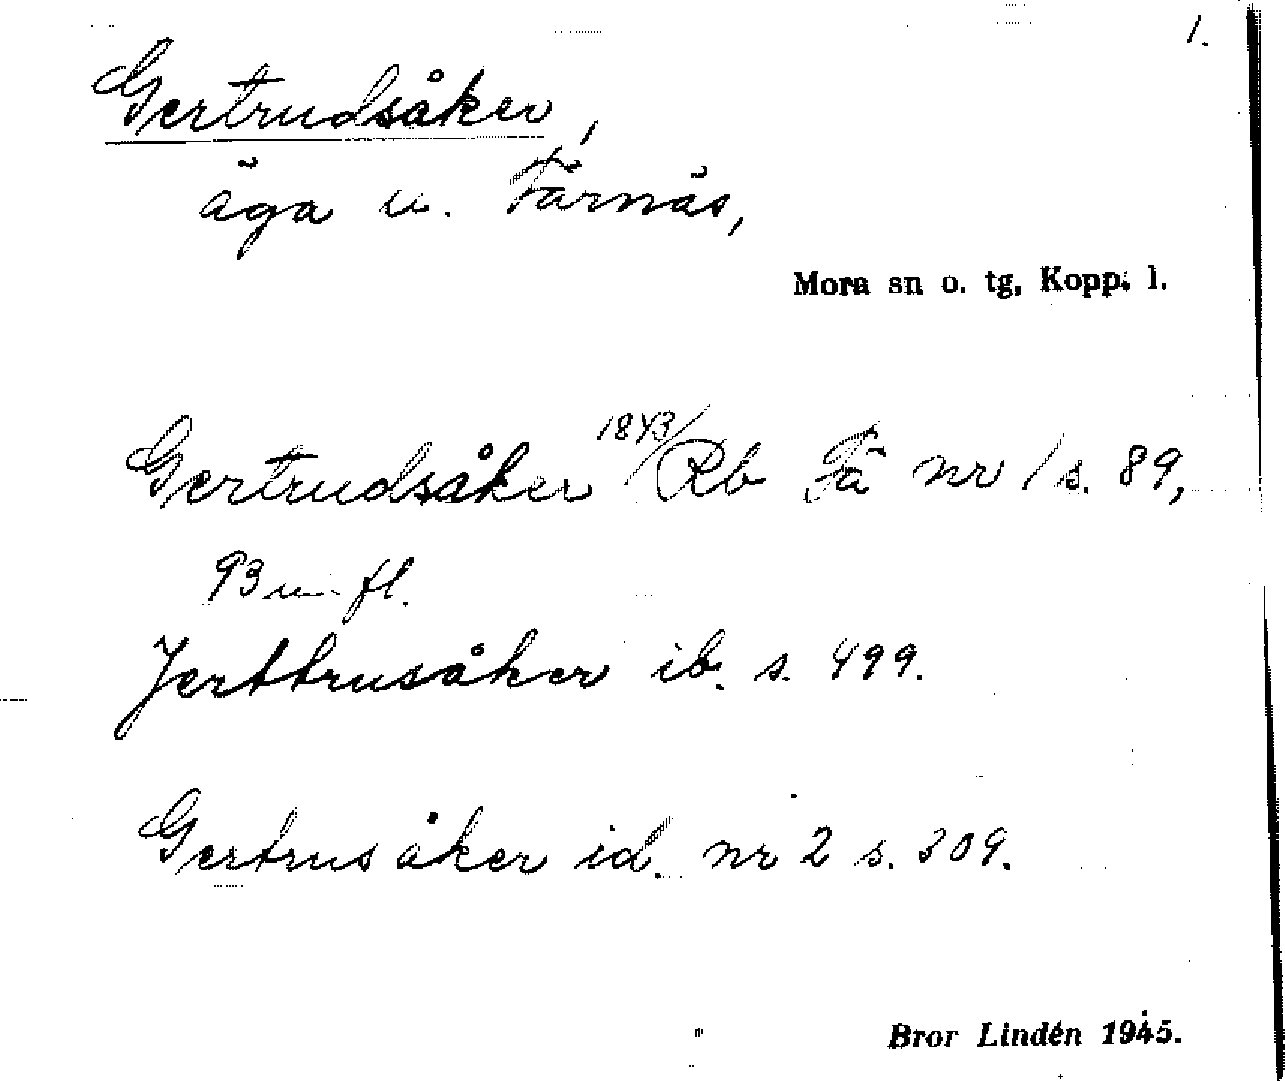 1.
Gertrudsåker,
äga u. Färnäs,
Mora sn o. tg, Kopp. l.
Gertrudsåker 1843/Rb Fä nr 1 s. 89,
93 m. fl.
Jerttrusåker ib. s. 499.
Gertrus åker id. nr 2 s. 309.
Bror Lindén 1945.